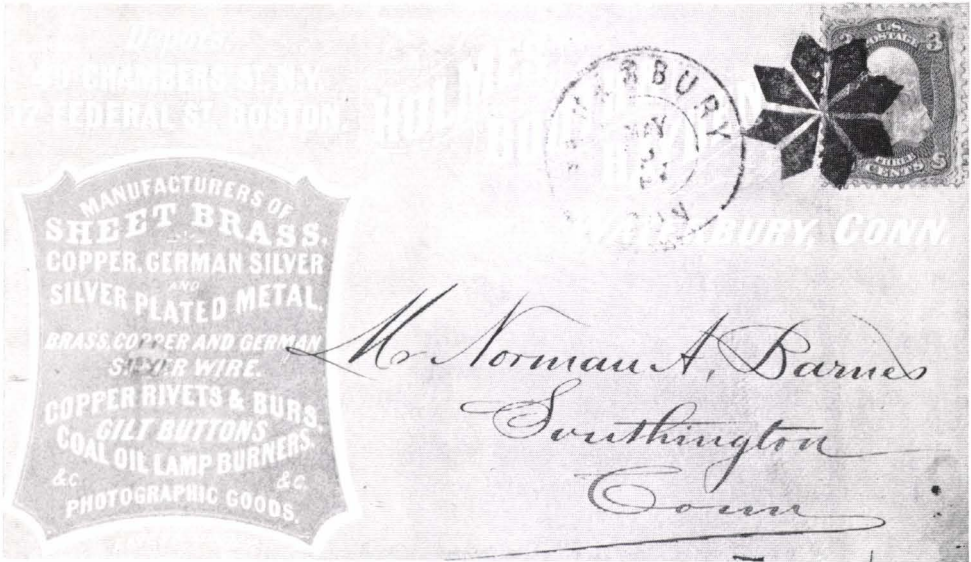 Depots.
CHAMBERS ST. N.Y.
12 FEDERAL ST. BOSTON.
HOLMES
BOOTH
HAYDEN
WATERBURY, CONN.
WATERBURY
MAY
CONN
U.S.
POSTAGE
3 3
THREE
CENTS
U S
MANUFACTURERS OF
SHEET BRASS,
COPPER, GERMAN SILVER
AND
SILVER PLATED METAL,
BRASS, COPPER AND GERMAN
SILVER WIRE.
COPPER RIVETS & BURS,
GILT BUTTONS
COAL OIL LAMP BURNERS.
&C. &C.
PHOTOGRAPHIC GOODS.
Mr Norman A. Barnes
Southington
Conn